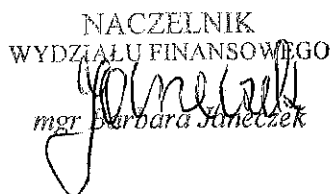 NACZELNIK
WYDZIAŁU FINANSOWEGO
mgr Barbara Janeczek